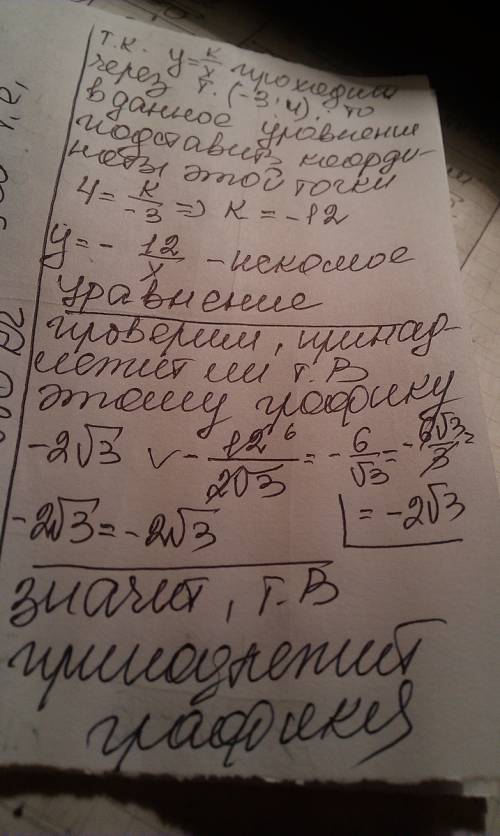 т.к. y = k/x проходит
через т. (-3; 4), то
в данное уравнение
подставить коорди-
наты этой точки
4 = k/-3 => k = -12
y = - 12/x - искомое
уравнение
проверим, принад-
лежит ли т. В
этому графику
-2√3 ∨ - 12 6/2√3 = - 6/√3 = - 6√3 2/3
= -2√3
-2√3 = -2√3
значит, т. В
принадлежит
графику